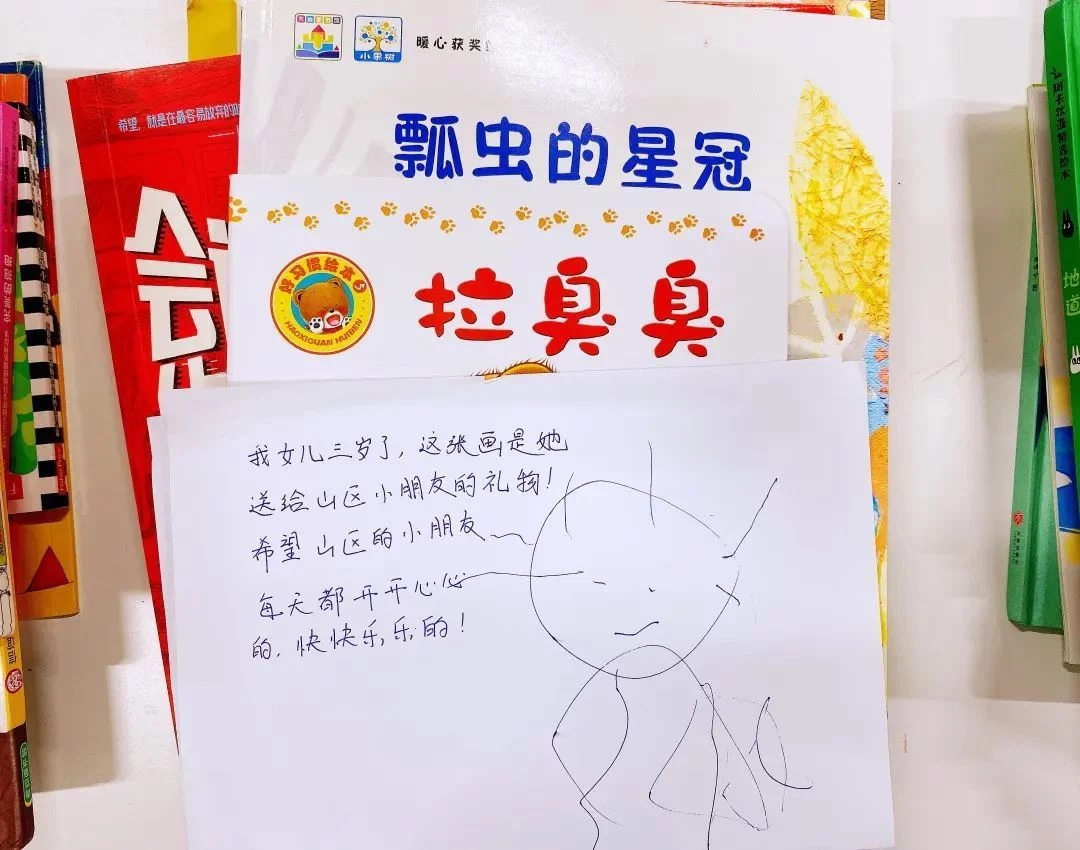 小果树
暖心获奖
瓢虫的星冠
希望，就是在最容易放弃的
会
好习惯绘本
HAOXIGUAN HUIBEN
拉臭臭
我女儿三岁了，这张画是她
送给山区小朋友的礼物！
希望山区的小朋友
每天都开开心心
的，快快乐乐的！
地道